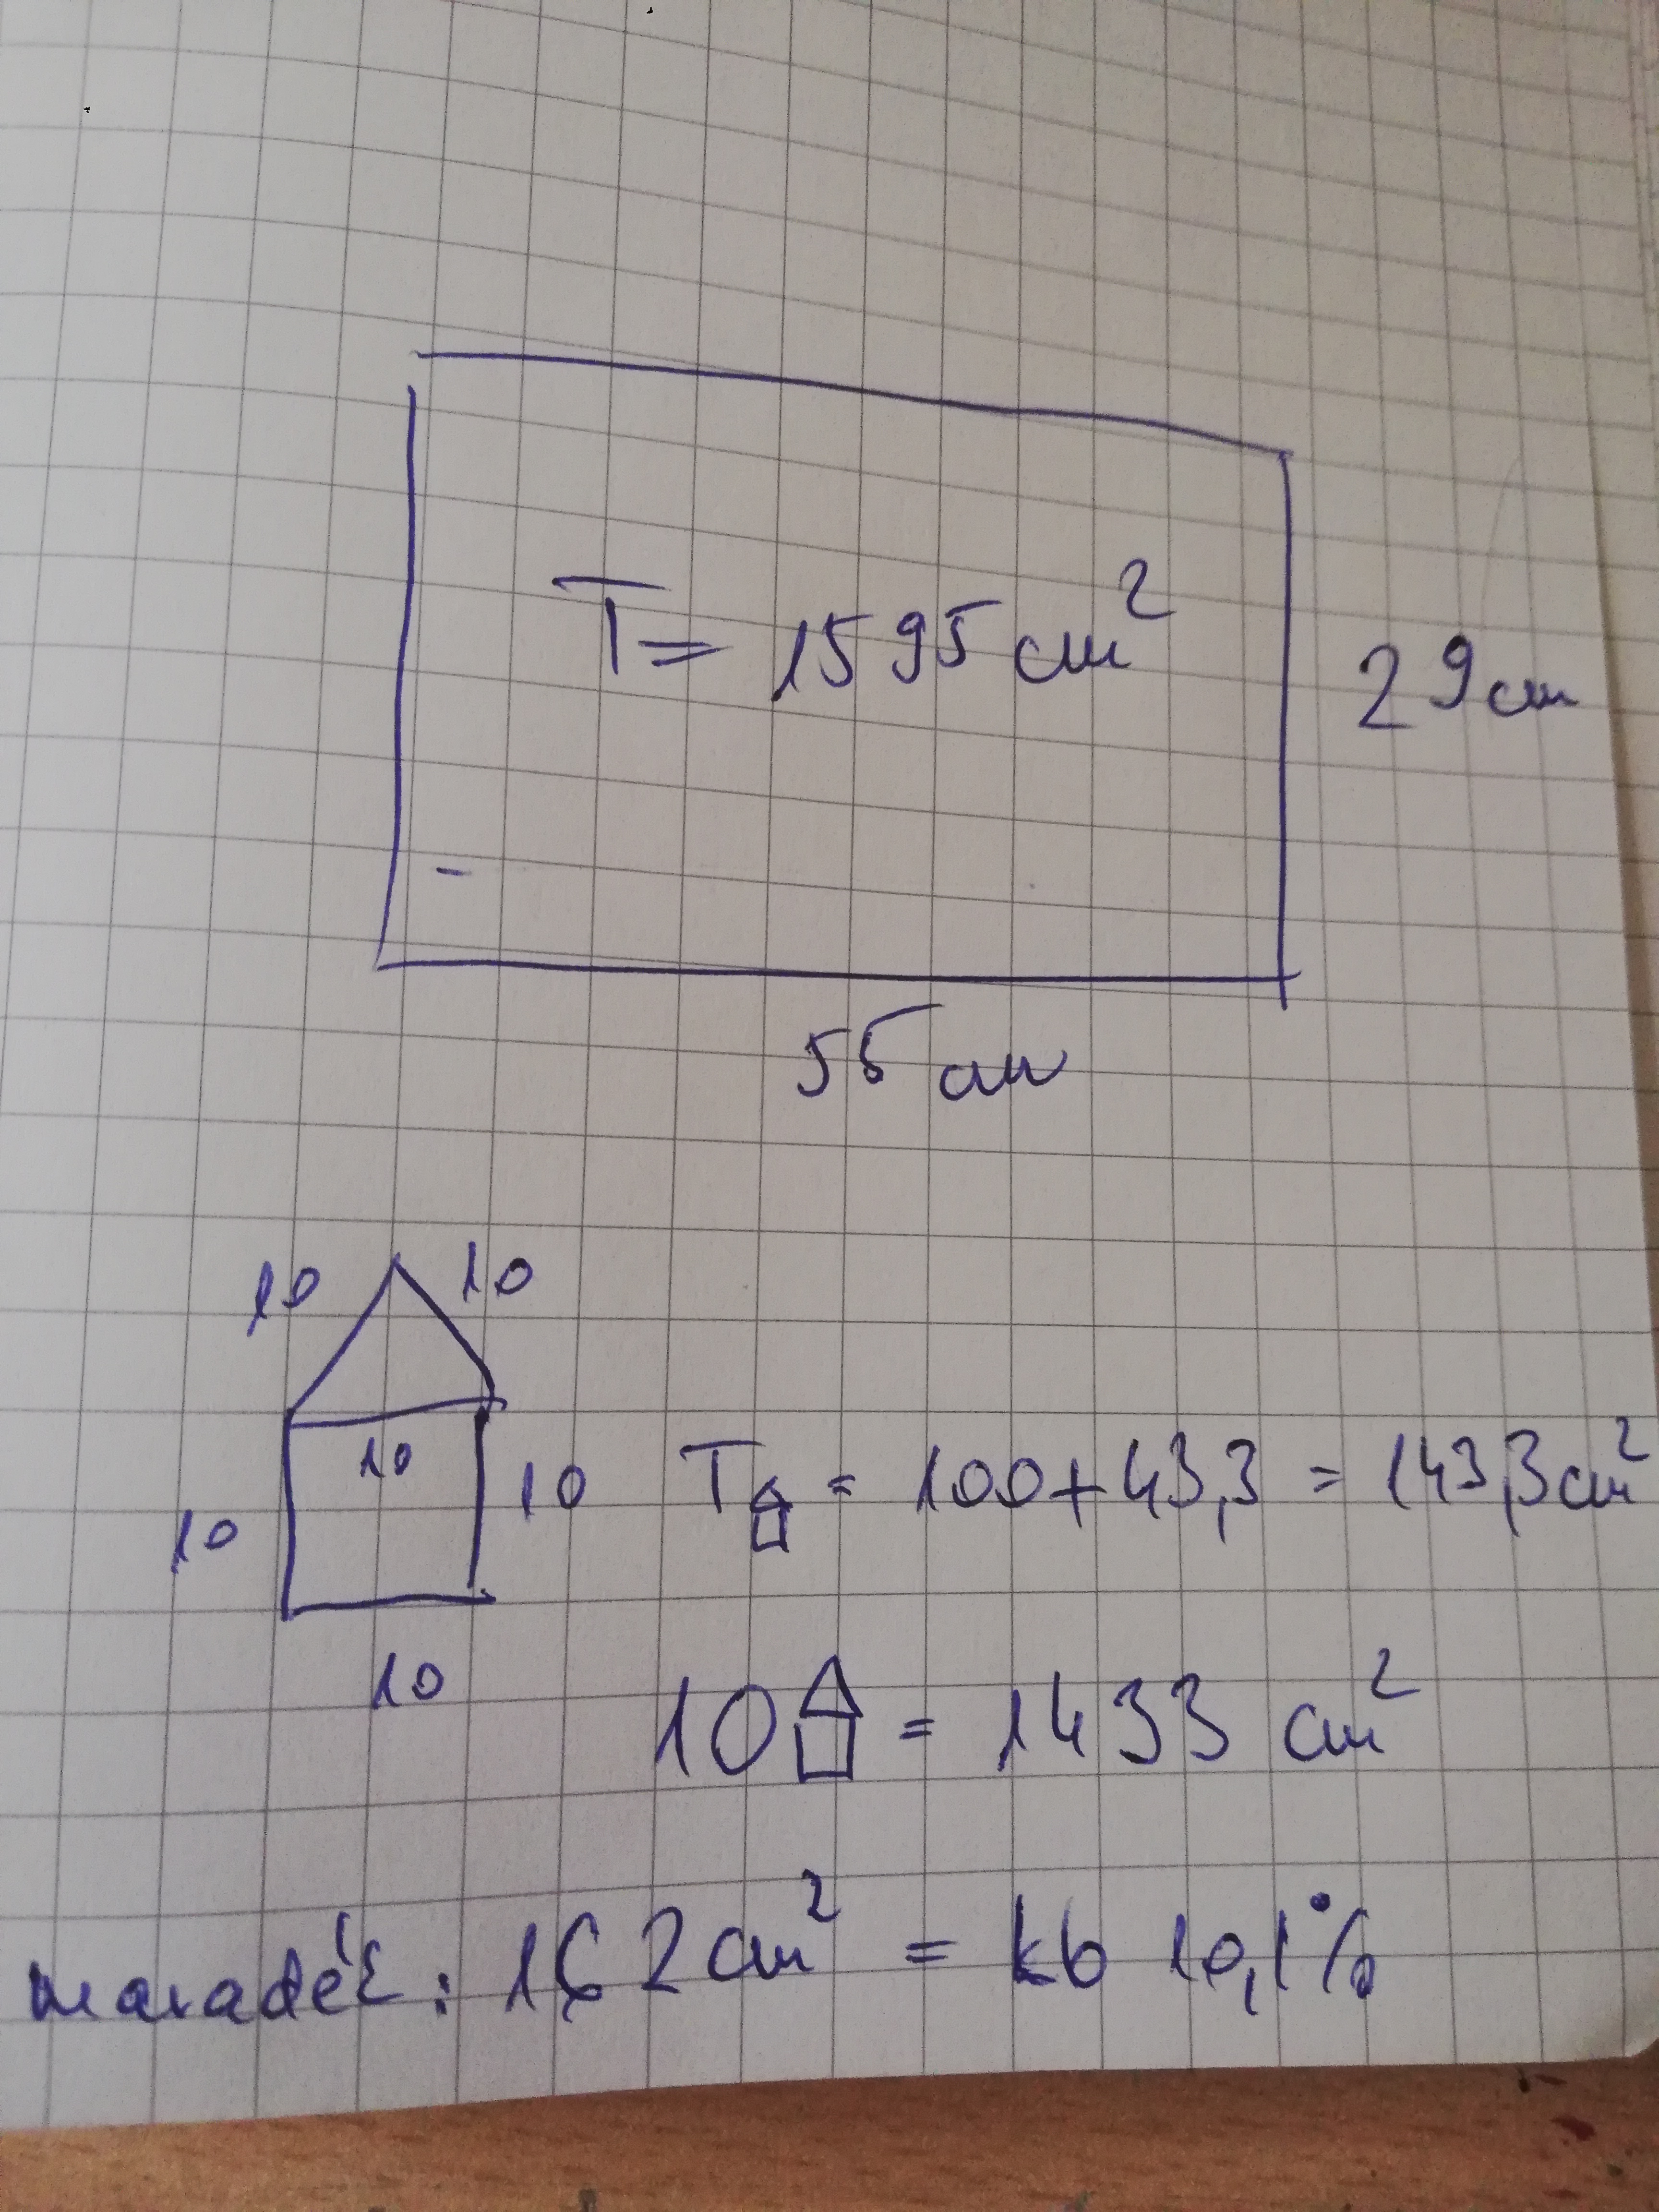 T = 1595 cm²
29 cm
55 cm
10 10
10
10 10
10
T = 100 + 43,3 = 143,3 cm²
10 = 1433 cm²
maradék: 162 cm² = kb 10,1%